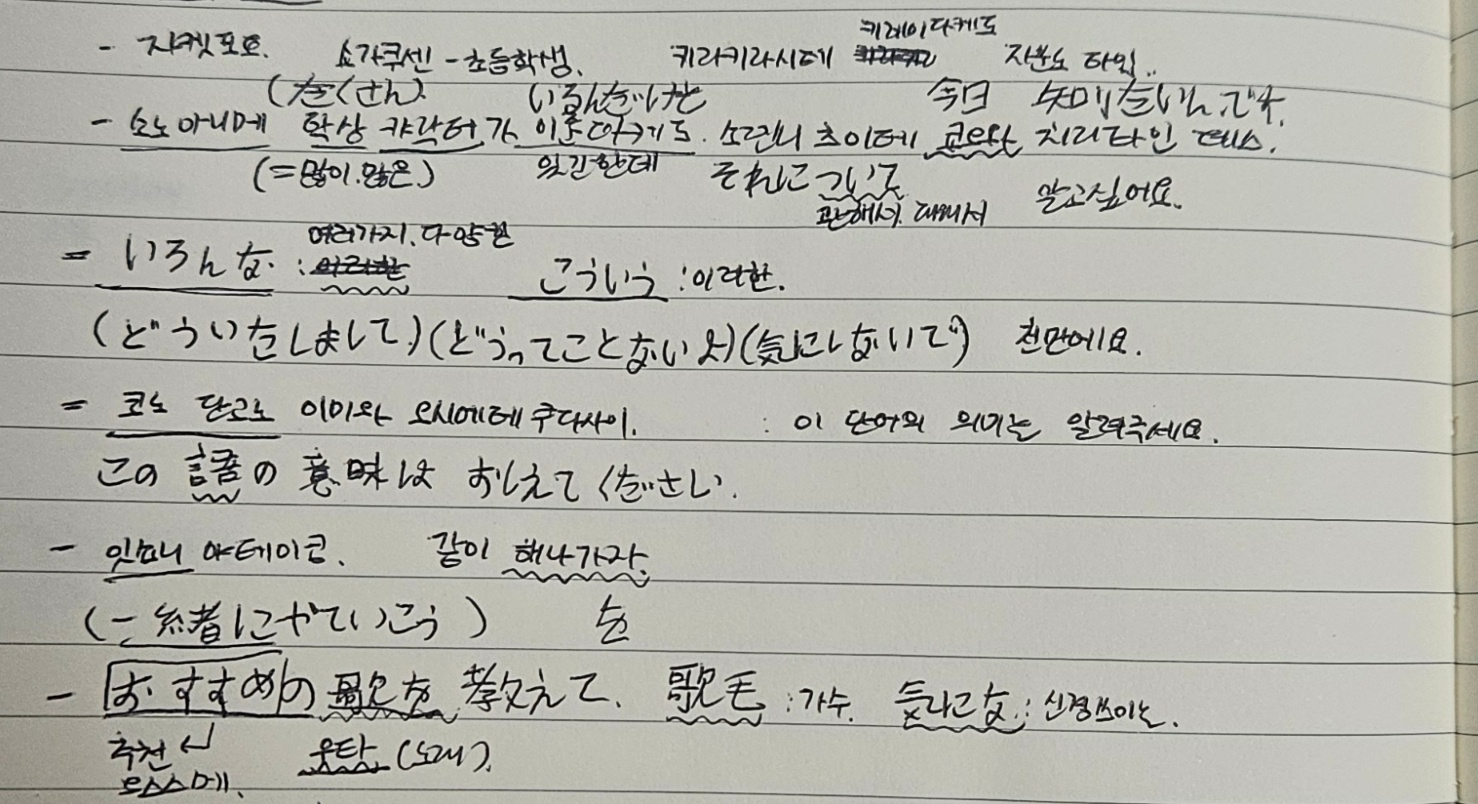 키레이다케도
- 자켓포토. 쇼가쿠센 - 초등학생. 키라키라시테 자분노 타임..
(たくさん) いるんだけど 今日 知りたいんです.
- 소노 아니메 학상 캬락터가 이룬다케도. 소레니 츠이테 쿄와 지리타인 데스.
(=많이.많은.) 있긴한데 それについて 관해서. 대해서 알고싶어요.
= いろんな : 여러가지.다양한 こういう : 이러한.
(どういたしまして)(どうってことないよ)(気にしないで) 천만에요.
= 코노 단고노 이미와 오시에테쿠다사이. : 이 단어의 의미는 알려주세요.
この 語の 意味は おしえて ください.
- 잇쇼니 야테이코. 같이 해나가자.
(一緒にやていこう) を
- おすすめの 歌を 教えて. 歌毛 : 가수. : 신경쓰이는.
추천 ↵ 우타 (노래).
오스스메.